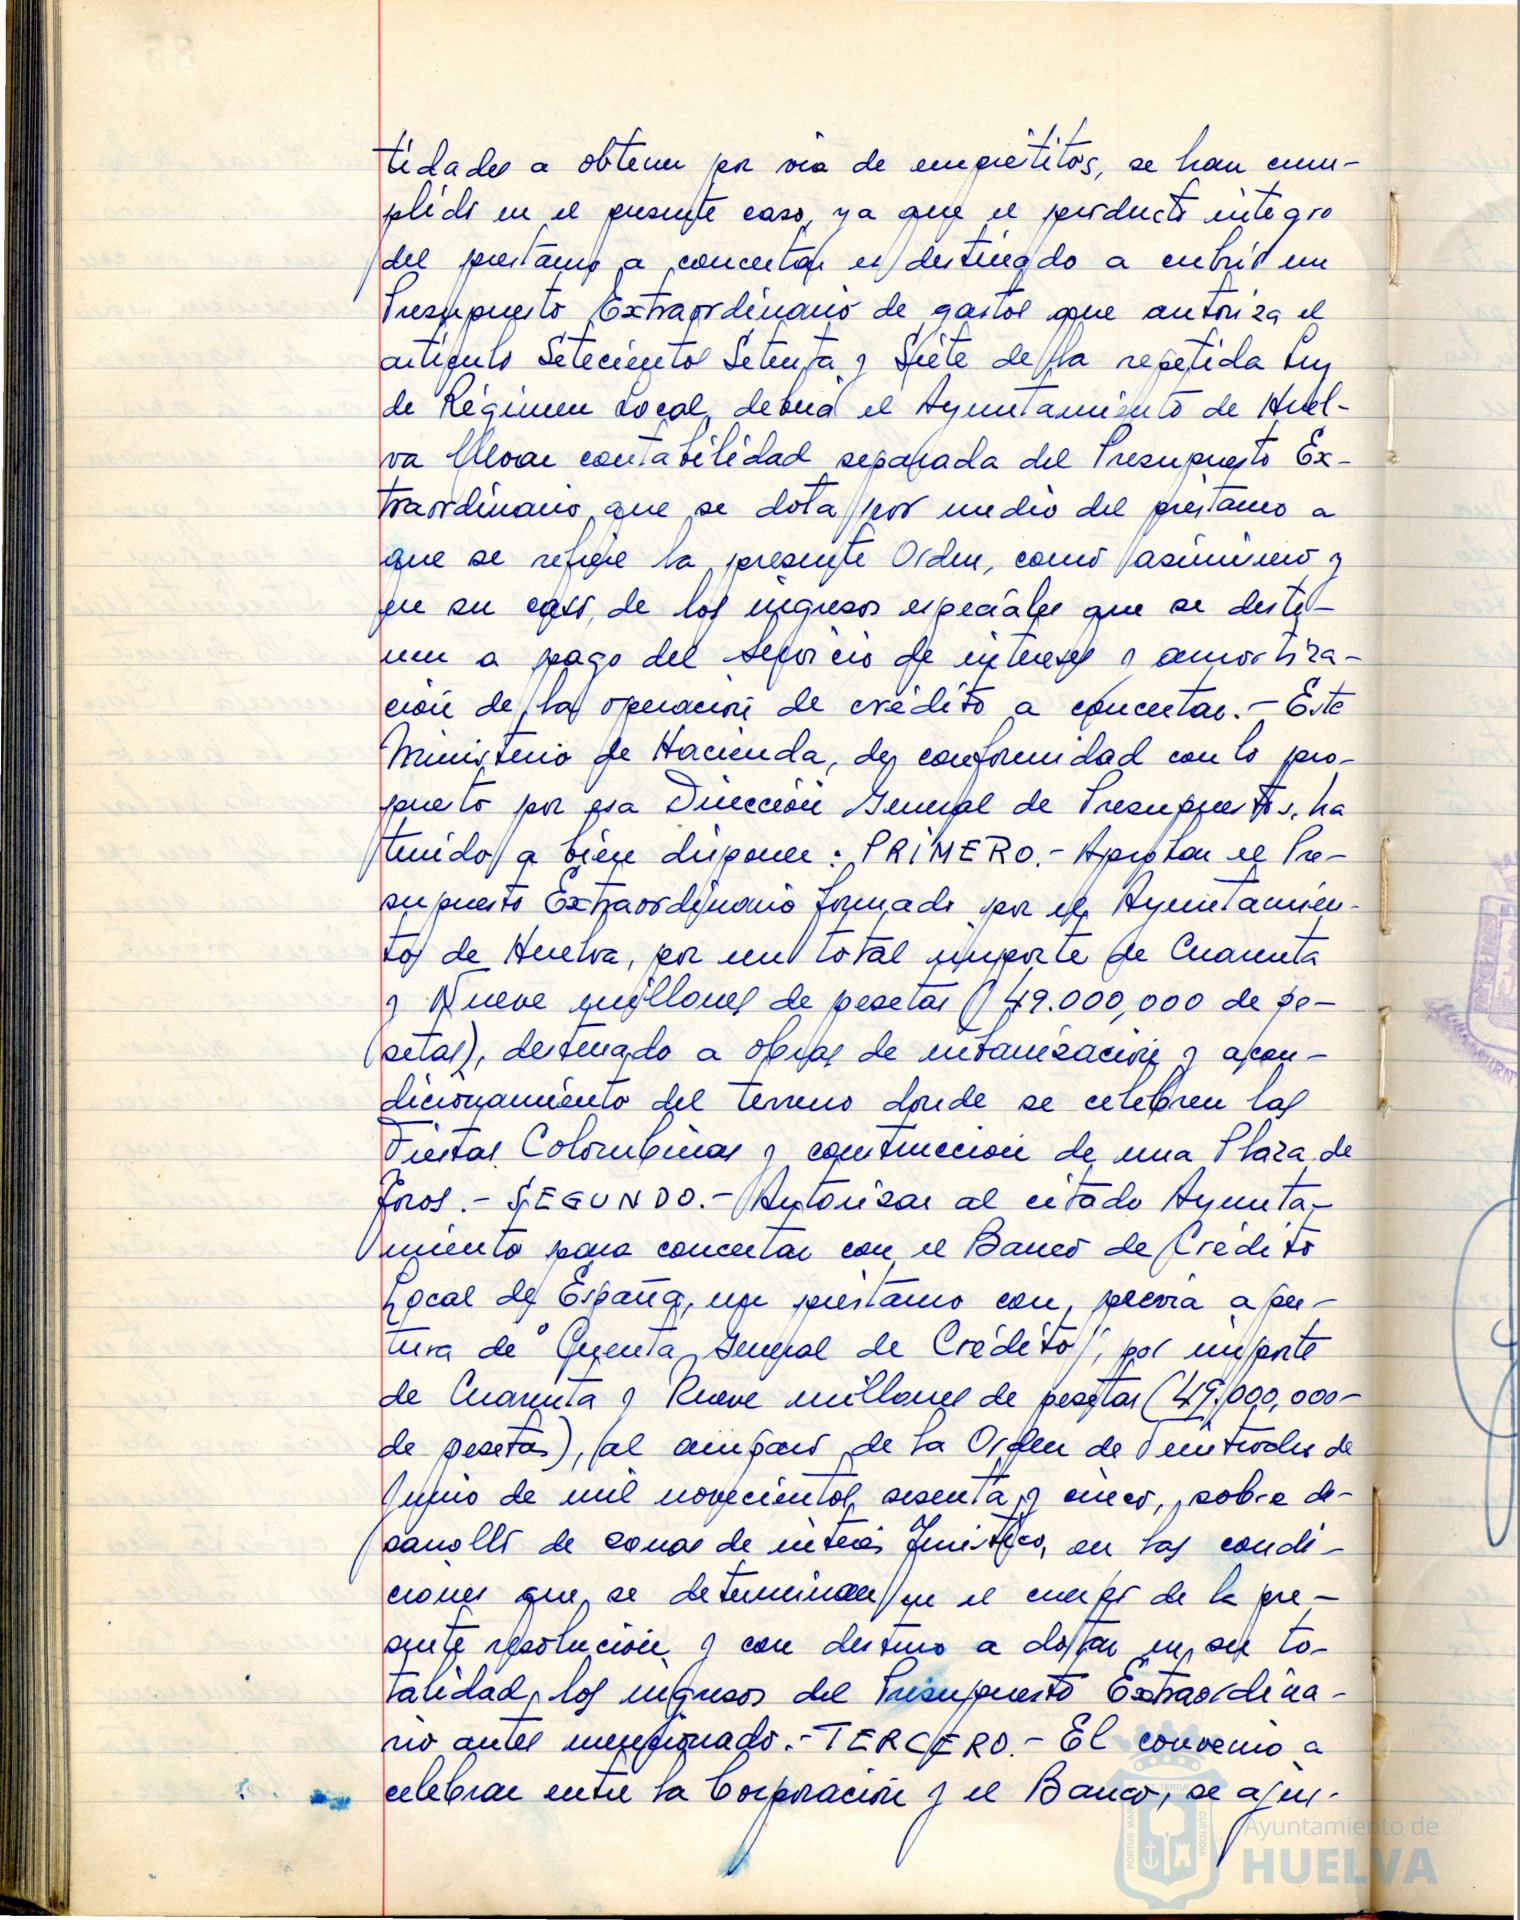 tidades a obtener por via de empréstitos, se han cum-
plido en el presente caso, ya que el producto integro
del prestamo a concertar es destinado a cubrir un
Presupuesto Extraordinario de gastos que autoriza el
artículo Setecientos Setenta y Siete de la repetida Ley
de Régimen Local, deberá el Ayuntamiento de Huel-
va llevar contabilidad separada del Presupuesto Ex-
traordinario que se dota por medio del préstamo a
que se refiere la presente Orden, como asimismo y
en su caso, de los ingresos especiales que se desti-
nen a pago del servicio de intereses y amortiza-
ción de la operación de crédito a concertar.- Este
Ministerio de Hacienda, de conformidad con lo pro-
puesto por esa Dirección General de Presupuestos, ha
tenido a bien disponer: PRIMERO.- Aprobar el Pre-
supuesto Extraordinario formado por el Ayuntamien-
to de Huelva, por un total importe de Cuarenta
y Nueve millones de pesetas (49.000,000 de pe-
setas), destinado a obras de urbanización y acon-
dicionamiento del terreno donde se celebren las
Fiestas Colombinas y construcción de una Plaza de
Toros.- SEGUNDO.- Autorizar al citado Ayunta-
miento para concertar con el Banco de Crédito
Local de España, un préstamo con, previa aper-
tura de "Cuenta General de Crédito", por importe
de Cuarenta y Nueve millones de pesetas (49.000,000-
de pesetas), al amparo de la Orden de Veintiocho de
Junio de mil novecientos sesenta y cinco, sobre de-
sarollo de zonas de interés Turístico, en las condi-
ciones que se determinan en el cuerpo de la pre-
sente resolución y con destino a dotar en su to-
talidad, los ingresos del Presupuesto Extraordina-
rio antes mencionado.- TERCERO.- El convenio a
celebrar entre la Corporación y el Banco, se ajus-
Ayuntamiento de
HUELVA